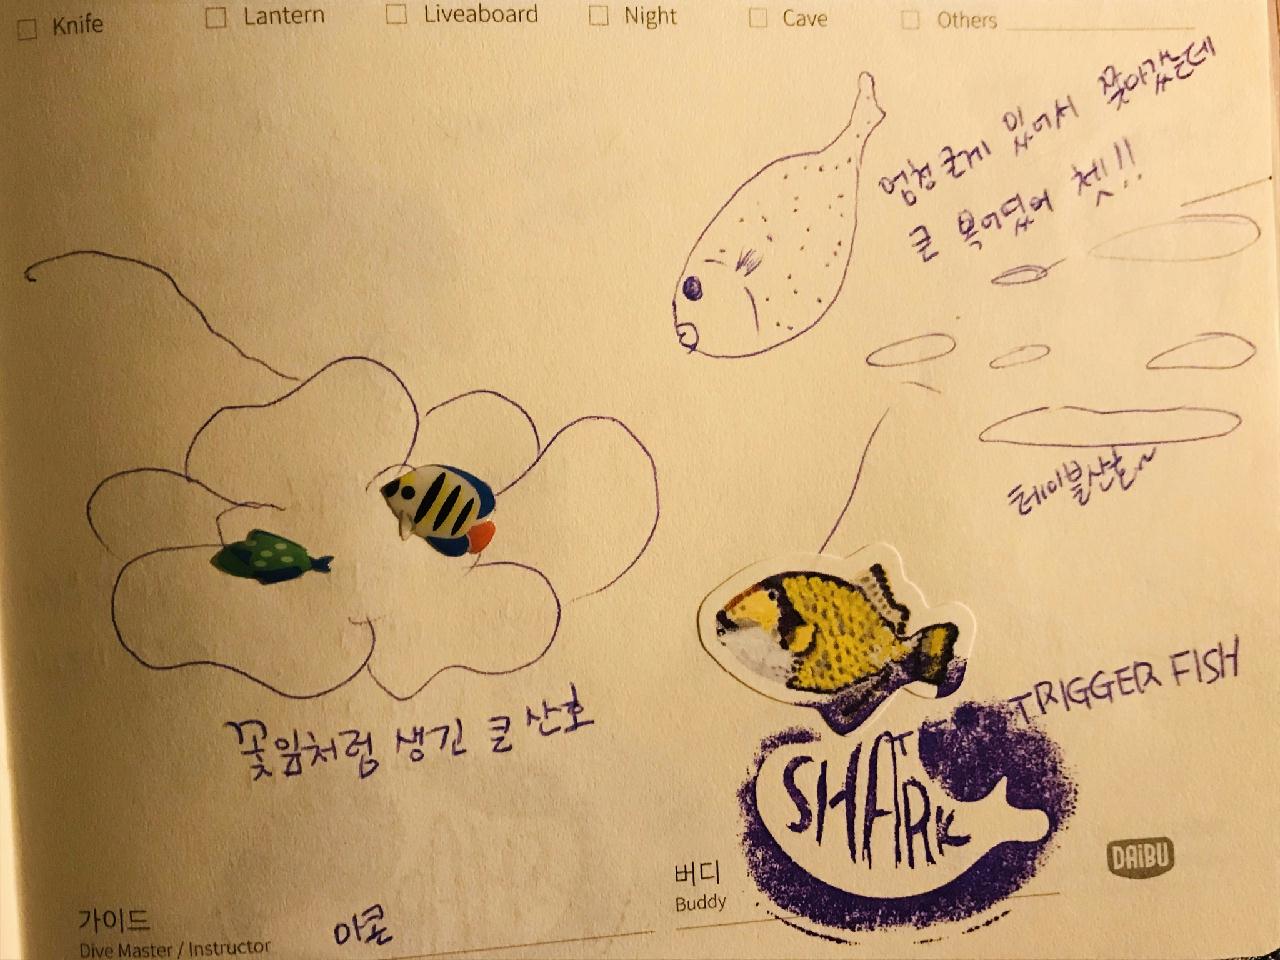 Knife Lantern Liveaboard Night Cave Others
엄청 크게 있어서 쫓아갔는데
큰 복어였어 쳇!!
테이블산호~
TRIGGER FISH
꽃잎처럼 생긴 큰 산호
SHARK
DAiBU
버디
Buddy
가이드
Dive Master / Instructor
아콘